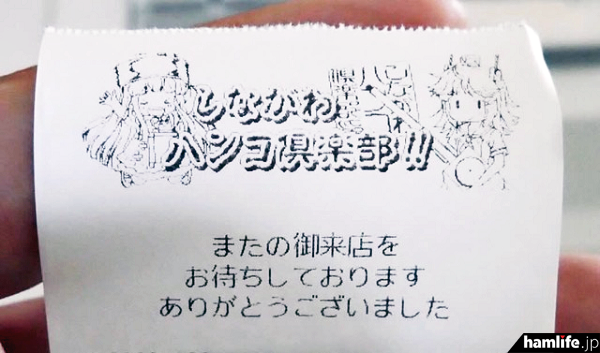 しながわ
ハンコ倶楽部!!
またの御来店を
お待ちしております
ありがとうございました
hamlife.jp